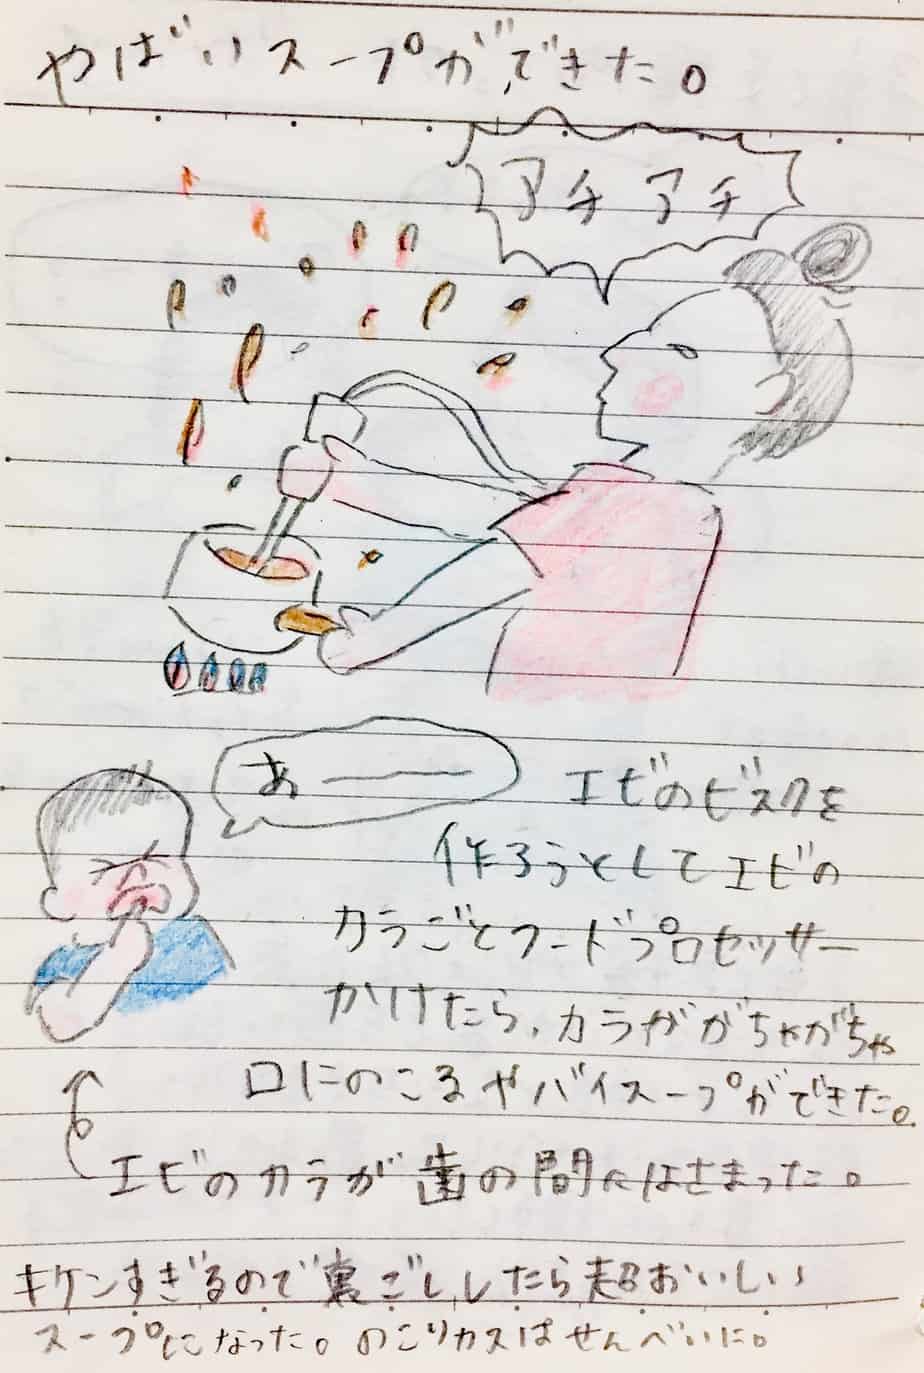 やばいスープができた。
アチアチ
あー
エビのビスクを
作ろうとしてエビの
カラごとフードプロセッサー
かけたら、カラががちゃがちゃ
口にのこるヤバイスープができた。
エビのカラが歯の間にはさまった。
キケンすぎるので裏ごししたら超おいしい
スープになった。のこりカスはせんべいに。